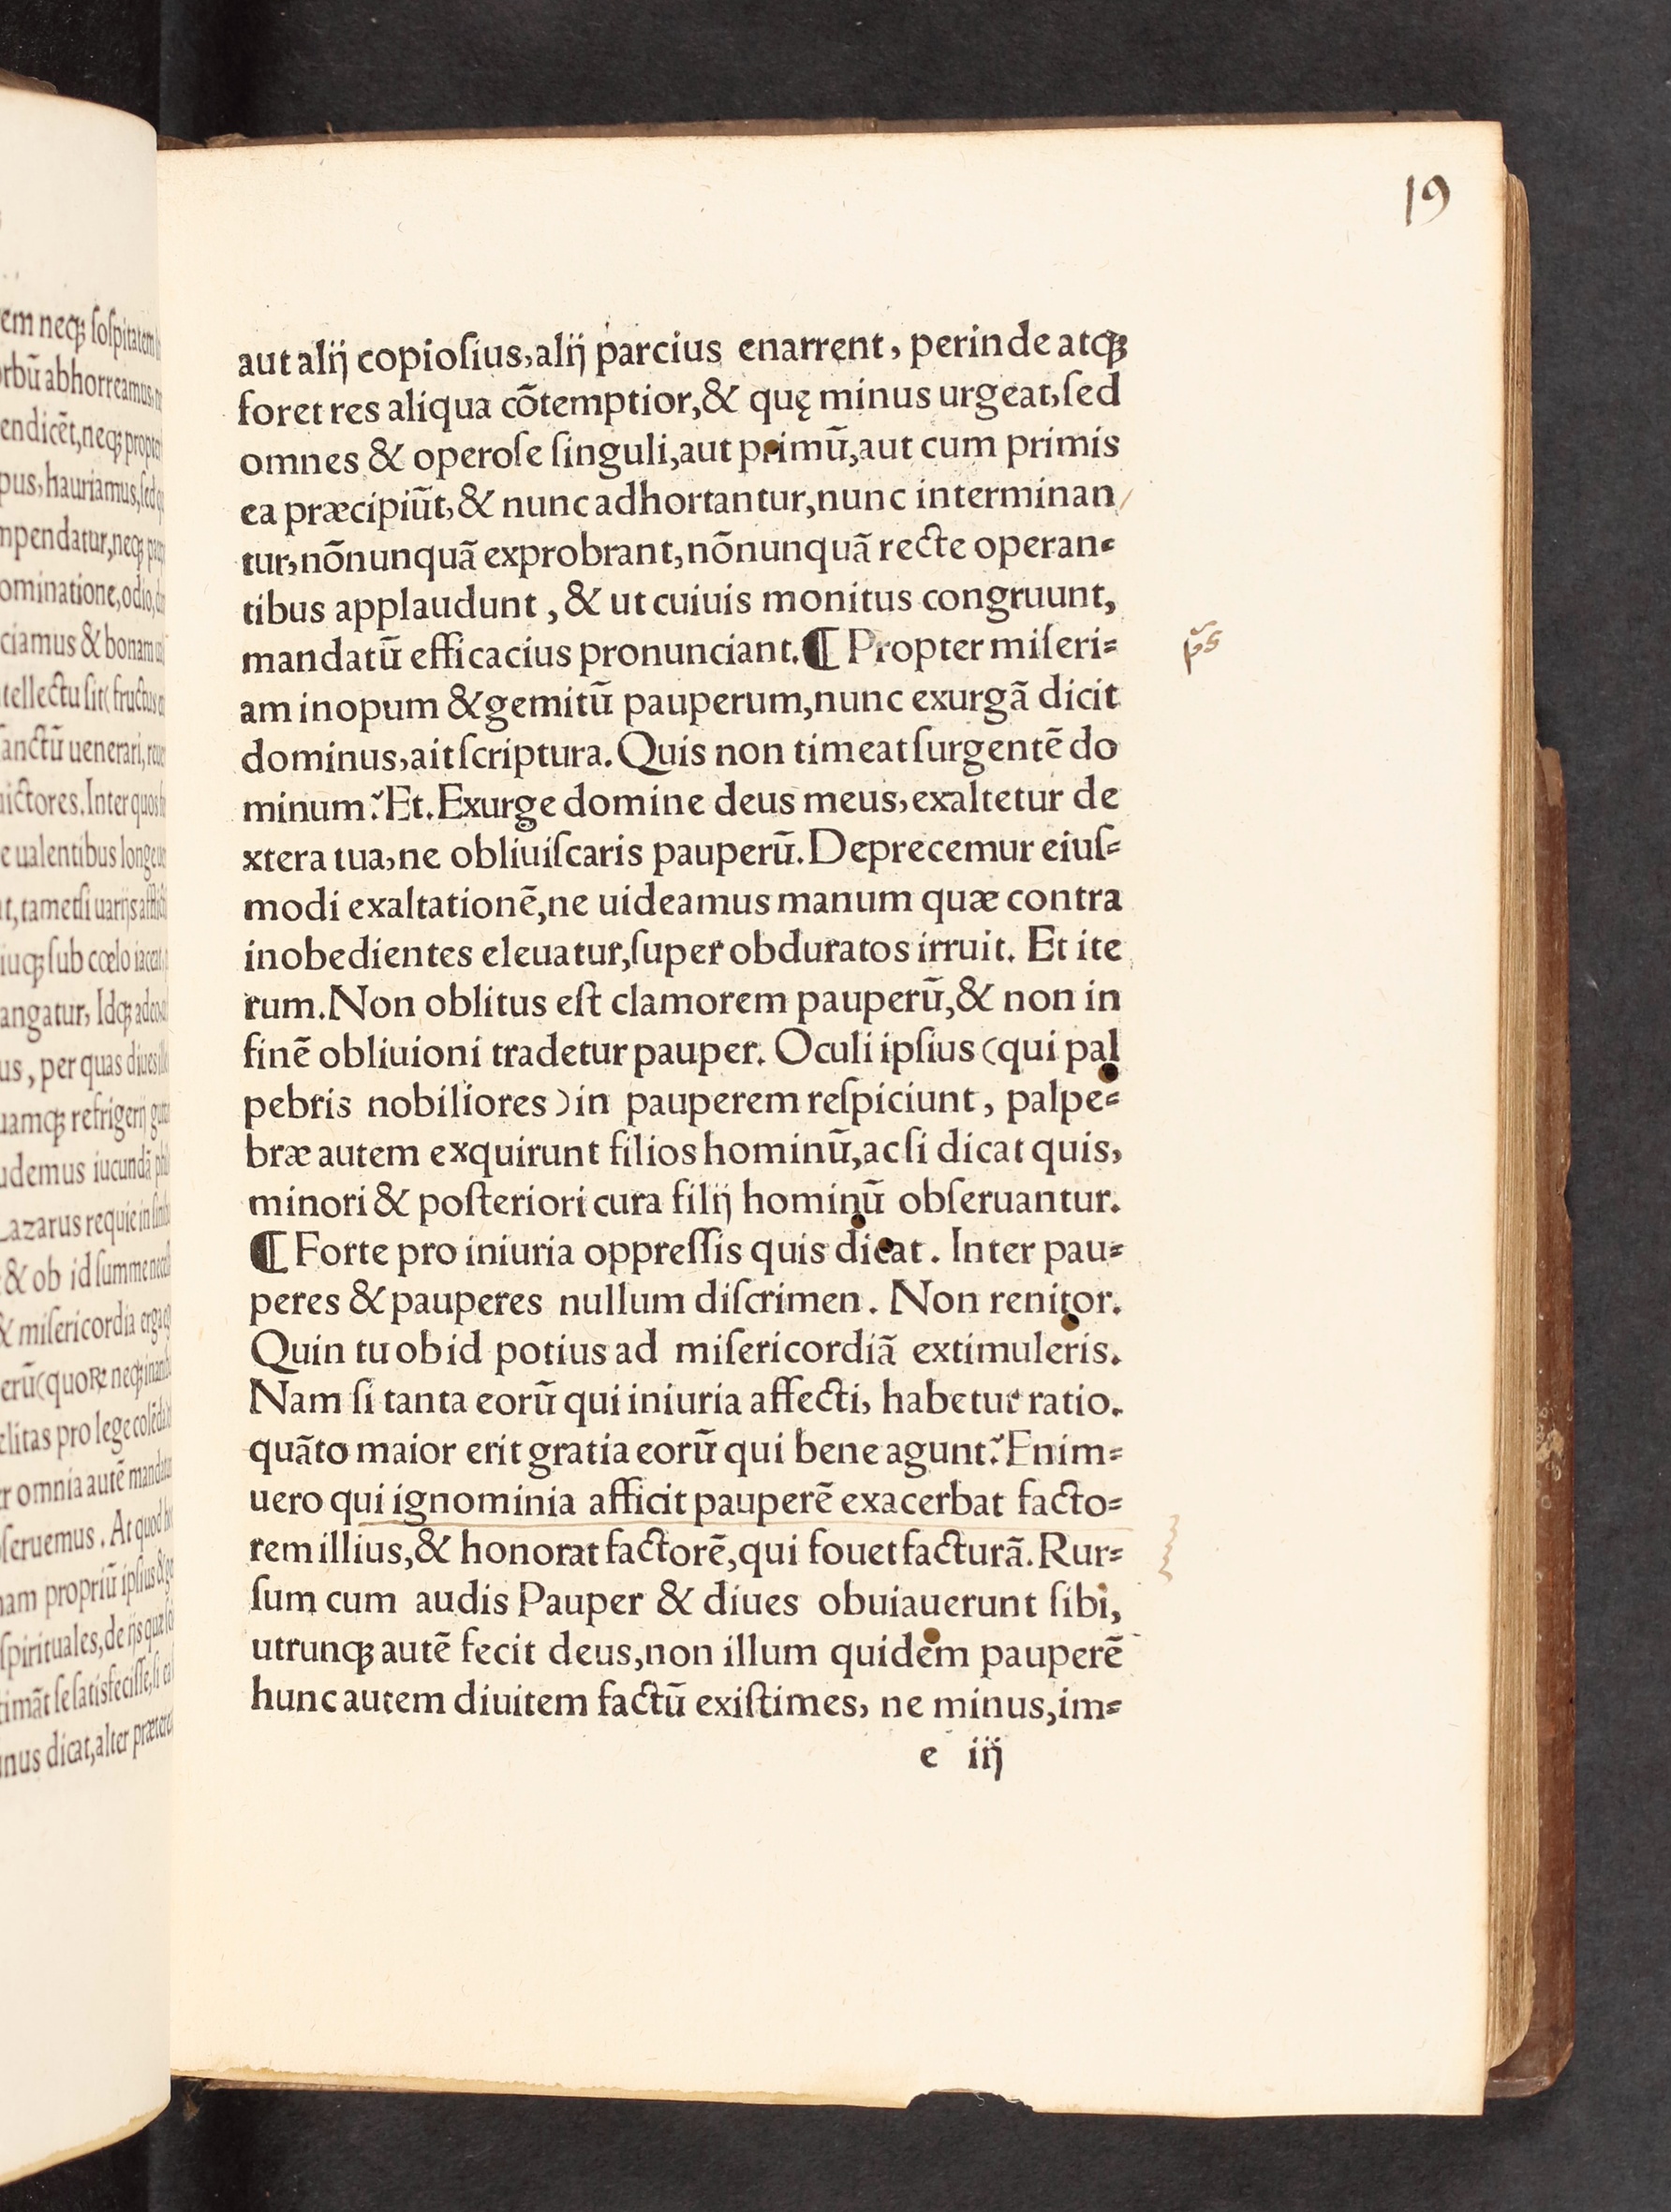 19
aut alij copioſius, alij parcius enarrent, perinde atqꝫ
foret res aliqua cõtemptior, & quę minus urgeat, ſed
omnes & operoſe ſinguli, aut primũ, aut cum primis
ea præcipiũt, & nunc adhortantur, nunc interminan/
tur, nõnunquã exprobrant, nõnunquã recte operan=
tibus applaudunt, & ut cuiuis monitus congruunt,
mandatũ efficacius pronunciant. ¶ Propter miſeri=
am inopum & gemitũ pauperum, nunc exurgã dicit
dominus, ait ſcriptura. Quis non timeat ſurgentẽ do
minum? Et. Exurge domine deus meus, exaltetur de
xtera tua, ne obliuiſcaris pauperũ. Deprecemur eiuſ=
modi exaltationẽ, ne uideamus manum quæ contra
inobedientes eleuatur, ſuper obduratos irruit. Et ite
rum. Non oblitus eſt clamorem pauperũ, & non in
finẽ obliuioni tradetur pauper. Oculi ipſius (qui pal
pebris nobiliores) in pauperem reſpiciunt, palpe=
bræ autem exquirunt filios hominũ, ac ſi dicat quis,
minori & poſteriori cura filij hominũ obſeruantur.
¶ Forte pro iniuria oppreſſis quis dicat. Inter pau=
peres & pauperes nullum diſcrimen. Non renitor.
Quin tu ob id potius ad miſericordiã extimuleris.
Nam ſi tanta eorũ qui iniuria affecti, habetur ratio.
quãto maior erit gratia eorũ qui bene agunt? Enim=
uero qui ignominia afficit pauperẽ exacerbat facto=
rem illius, & honorat factorẽ, qui fouet facturã. Rur=
ſum cum audis Pauper & diues obuiauerunt ſibi,
utrunqꝫ autẽ fecit deus, non illum quidem pauperẽ
hunc autem diuitem factũ exiſtimes, ne minus, im=
e iij